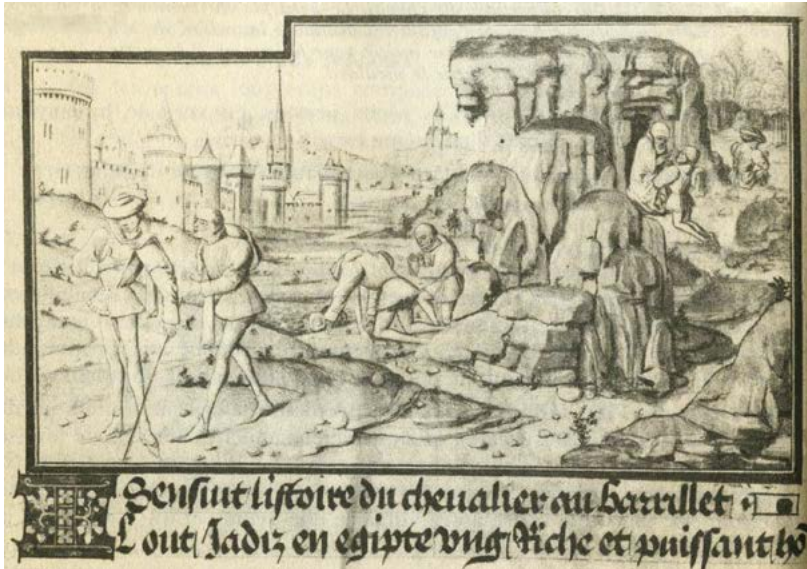 Sensiut listoire du chevalier au barrillet
Il out Jadiz en egipte vng Riche et puissant hō